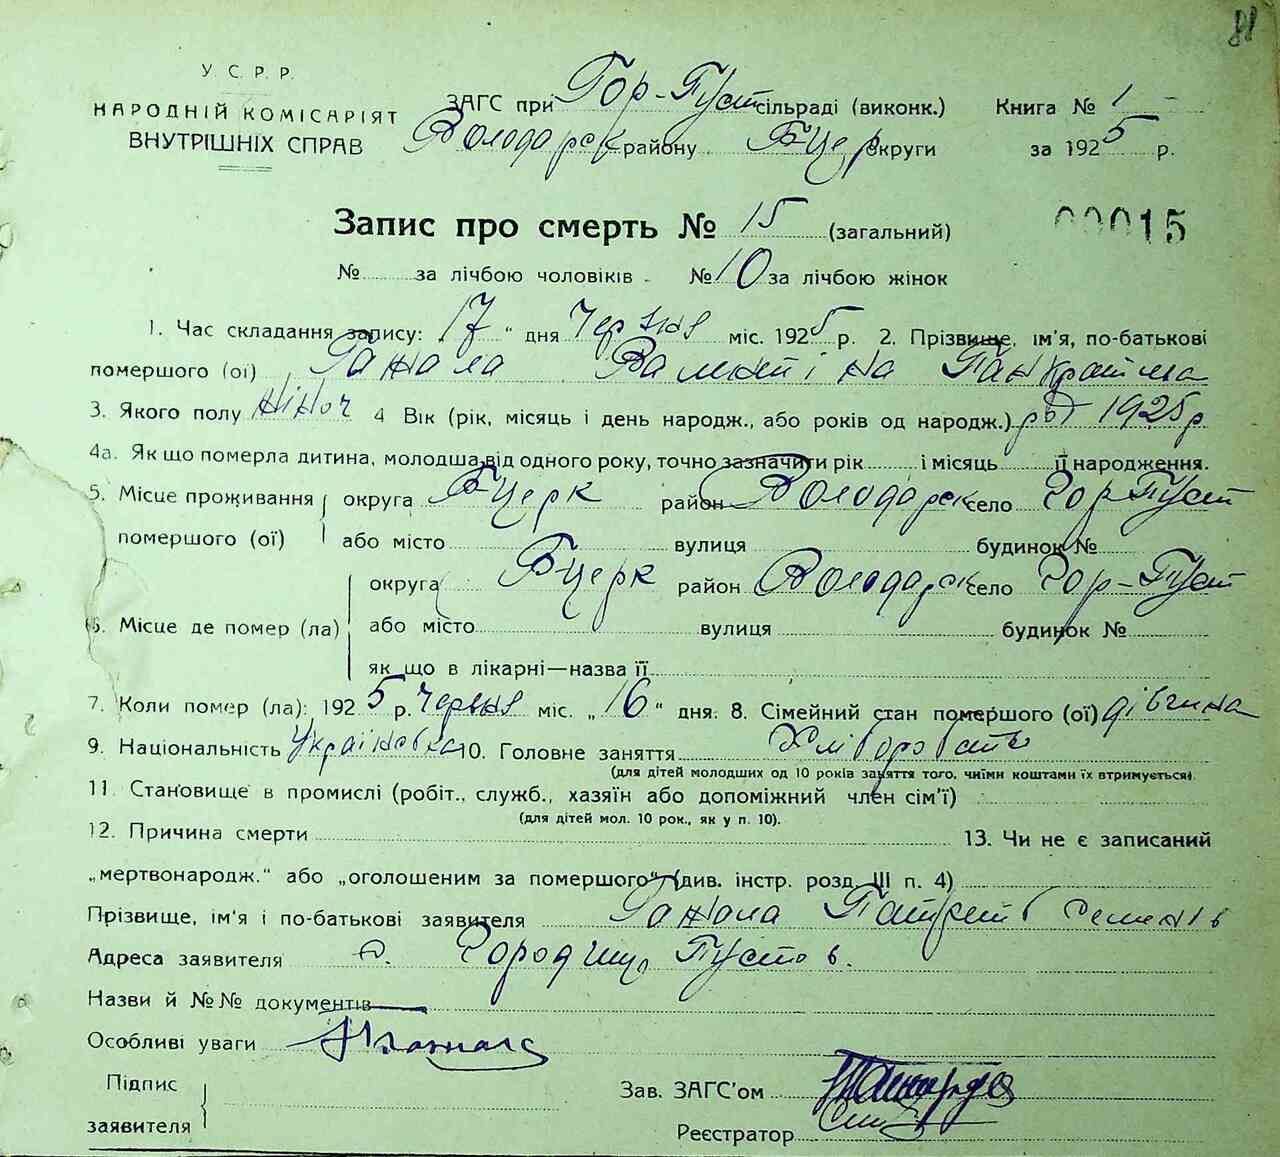 81
У. С. Р. Р.
НАРОДНІЙ КОМІСАРІЯТ
ВНУТРІШНІХ СПРАВ
ЗАГС при Гор-Пуст сільраді (виконк.)
Володарск району Бцер округи
Книга № 1
за 1925 р.
Запис про смерть № 15 (загальний)
00015
№ за лічбою чоловіків - № 10 за лічбою жінок
1. Час складання запису: 17 " дня Червня міс. 1925 р. 2. Прізвище, ім'я, по-батькові
помершого (ої) Гажала Валентіна
3. Якого полу жіноч 4 Вік (рік, місяць і день народж., або років од народж.) 1925 р
4а. Як що померла дитина, молодша від одного року, точно зазначити рік і місяць її народження.
5. Місце проживання помершого (ої) округа Бцерк район Володарск село Гор-Пуст
або місто вулиця будинок №
6. Місце де помер (ла) округа Бцерк район Володарск село Гор-Пуст
або місто вулиця будинок №
як що в лікарні—назва її
7. Коли помер (ла): 1925 р. Червня міс. „ 16 " дня. 8. Сімейний стан помершого (ої) дівчина
9. Національність Українка 10. Головне заняття Хліборобств
(для дітей молодших од 10 років заняття того, чиїми коштами їх втримується)
11. Становище в промислі (робіт., служб., хазяїн або допоміжний член сім'ї)
(для дітей мол. 10 рок., як у п. 10).
12. Причина смерти 13. Чи не є записаний
„мертвонародж." або „оголошеним за помершого" (див. інстр. розд. III п. 4)
Прізвище, ім'я і по-батькові заявителя Гажала
Адреса заявителя с. Городище Пустов.
Назви й №№ документів
Особливі уваги
Підпис
заявителя
Зав. ЗАГС'ом
Реєстратор